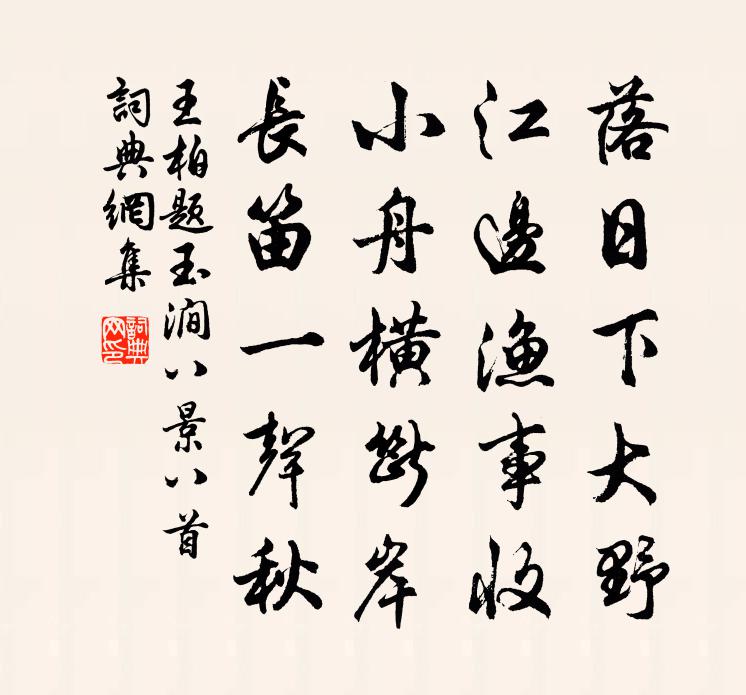 落日下大野
江邊漁事收
小舟橫斷岸
長笛一聲秋
王柏題玉澗八景八首
詞典網集
詞典網印